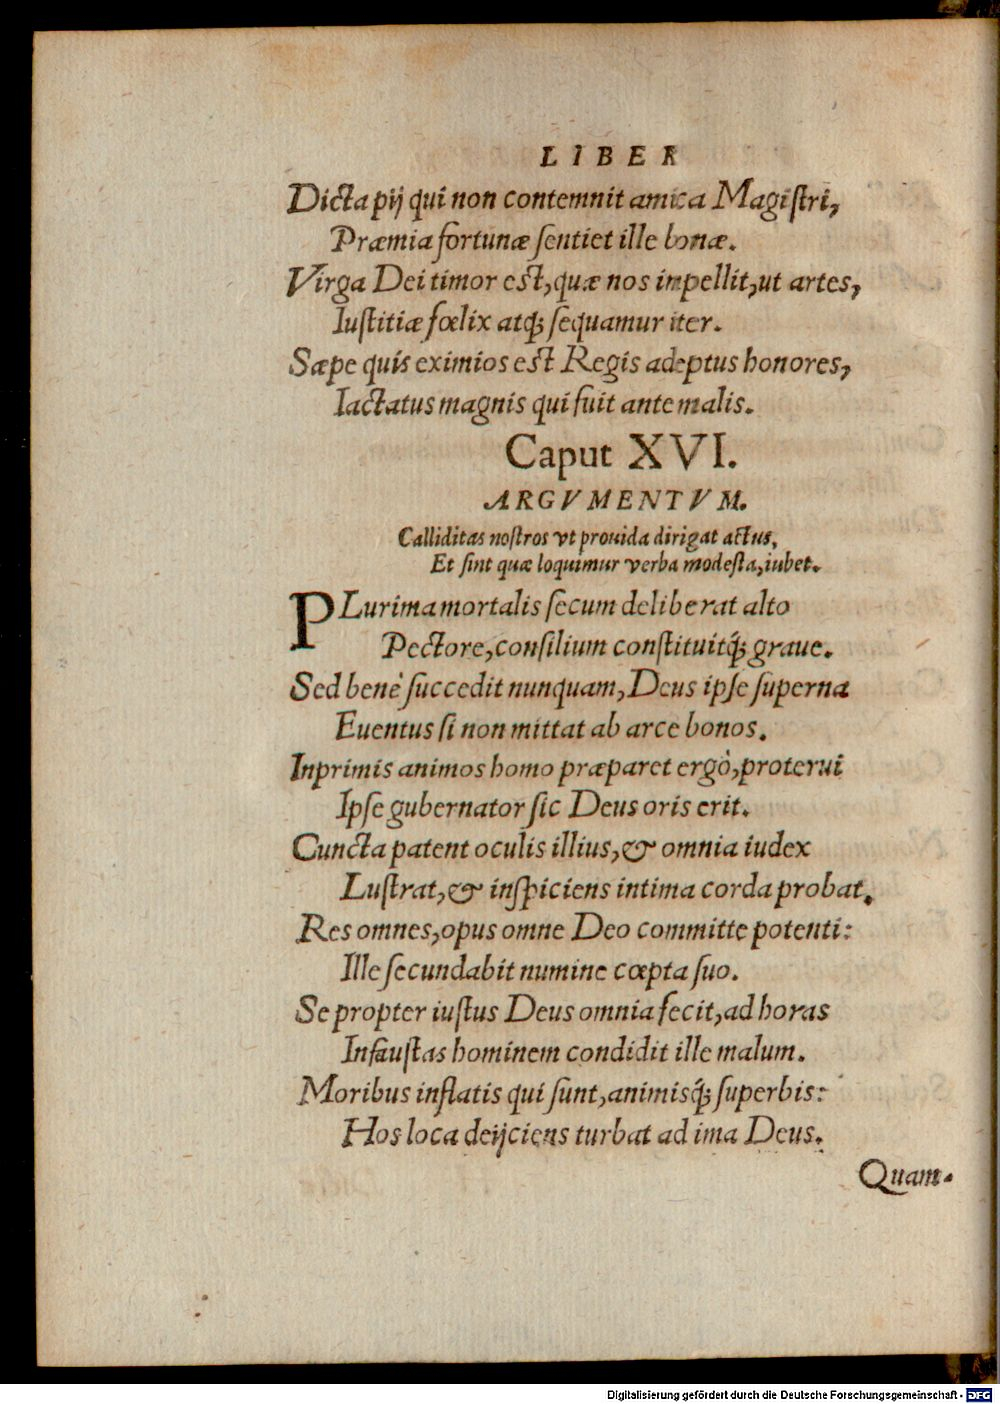 LIBER
Dicta pij qui non contemnit amica Magiſtri,
Præmia fortunæ ſentiet ille bonæ.
Virga Dei timor est, quæ nos impellit, ut artes,
Iuſtitiæ fœlix atq́; ſequamur iter.
Sæpe quis eximios est Regis adeptus honores,
Iactatus magnis qui fuit ante malis.
Caput XVI.
ARGVMENTVM.
Calliditas noſtros vt prouida dirigat actus,
Et ſint quæ loquimur verba modeſta, iubet.
PLurima mortalis ſecum deliberat alto
Pectore, conſilium conſtituitq́; graue.
Sed benè ſuccedit nunquam, Deus ipſe ſuperna
Euentus ſi non mittat ab arce bonos.
Inprimis animos homo præparet ergò, proterui
Ipſe gubernator ſic Deus oris erit.
Cuncta patent oculis illius, & omnia iudex
Luſtrat, & inſpiciens intima corda probat.
Res omnes, opus omne Deo committe potenti:
Ille ſecundabit numine cœpta ſuo.
Se propter iuſtus Deus omnia fecit, ad horas
Infauſtas hominem condidit ille malum.
Moribus inflatis qui ſunt, animisq́; ſuperbis:
Hos loca deijciens turbat ad ima Deus.
Quam-
Digitalisierung gefördert durch die Deutsche Forschungsgemeinschaft - DFG